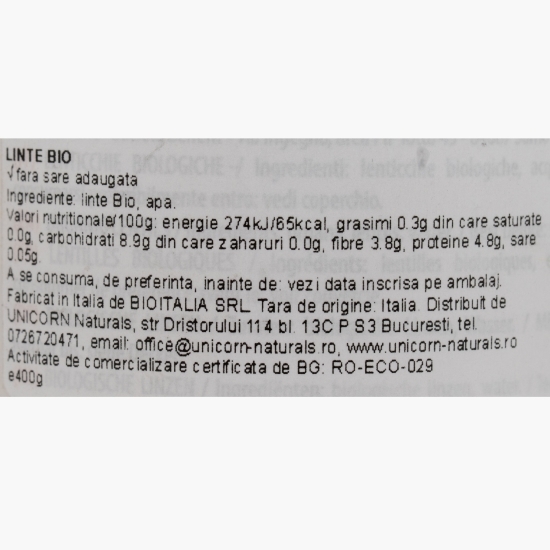 LINTE BIO
√fara sare adaugata
Ingrediente: linte Bio, apa.
Valori nutritionale/100g: energie 274kJ/65kcal, grasimi 0.3g din care saturate
0.0g, carbohidrati 8.9g din care zaharuri 0.0g, fibre 3.8g, proteine 4.8g, sare
0.05g.
A se consuma, de preferinta, inainte de: vezi data inscrisa pe ambalaj.
Fabricat in Italia de BIOITALIA SRL. Tara de origine: Italia. Distribuit de
UNICORN Naturals, str Dristorului 114 bl. 13C P S3 Bucuresti, tel.
0726720471, email: office@unicorn-naturals.ro, www.unicorn-naturals.ro
Activitate de comercializare certificata de BG: RO-ECO-029
e400g
LENTICCHIE BIOLOGICHE / Ingredienti: lenticchie biologiche,
entro: vedi coperchio.
LENTILLES BIOLOGIQUES / Ingrédients: lentilles biologiques,
BIOLOGISCHE LINZEN / Ingrediënten: biologische linzen,